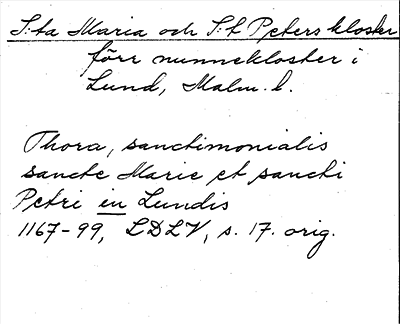 S:ta Maria och S:t Peters kloster
förr nunnekloster i
Lund, Malm. l.
Thora, sanctimonialis
sancte Marie et sancti
Petri in Lundis
1167-99, LDLV, s. 17. orig.